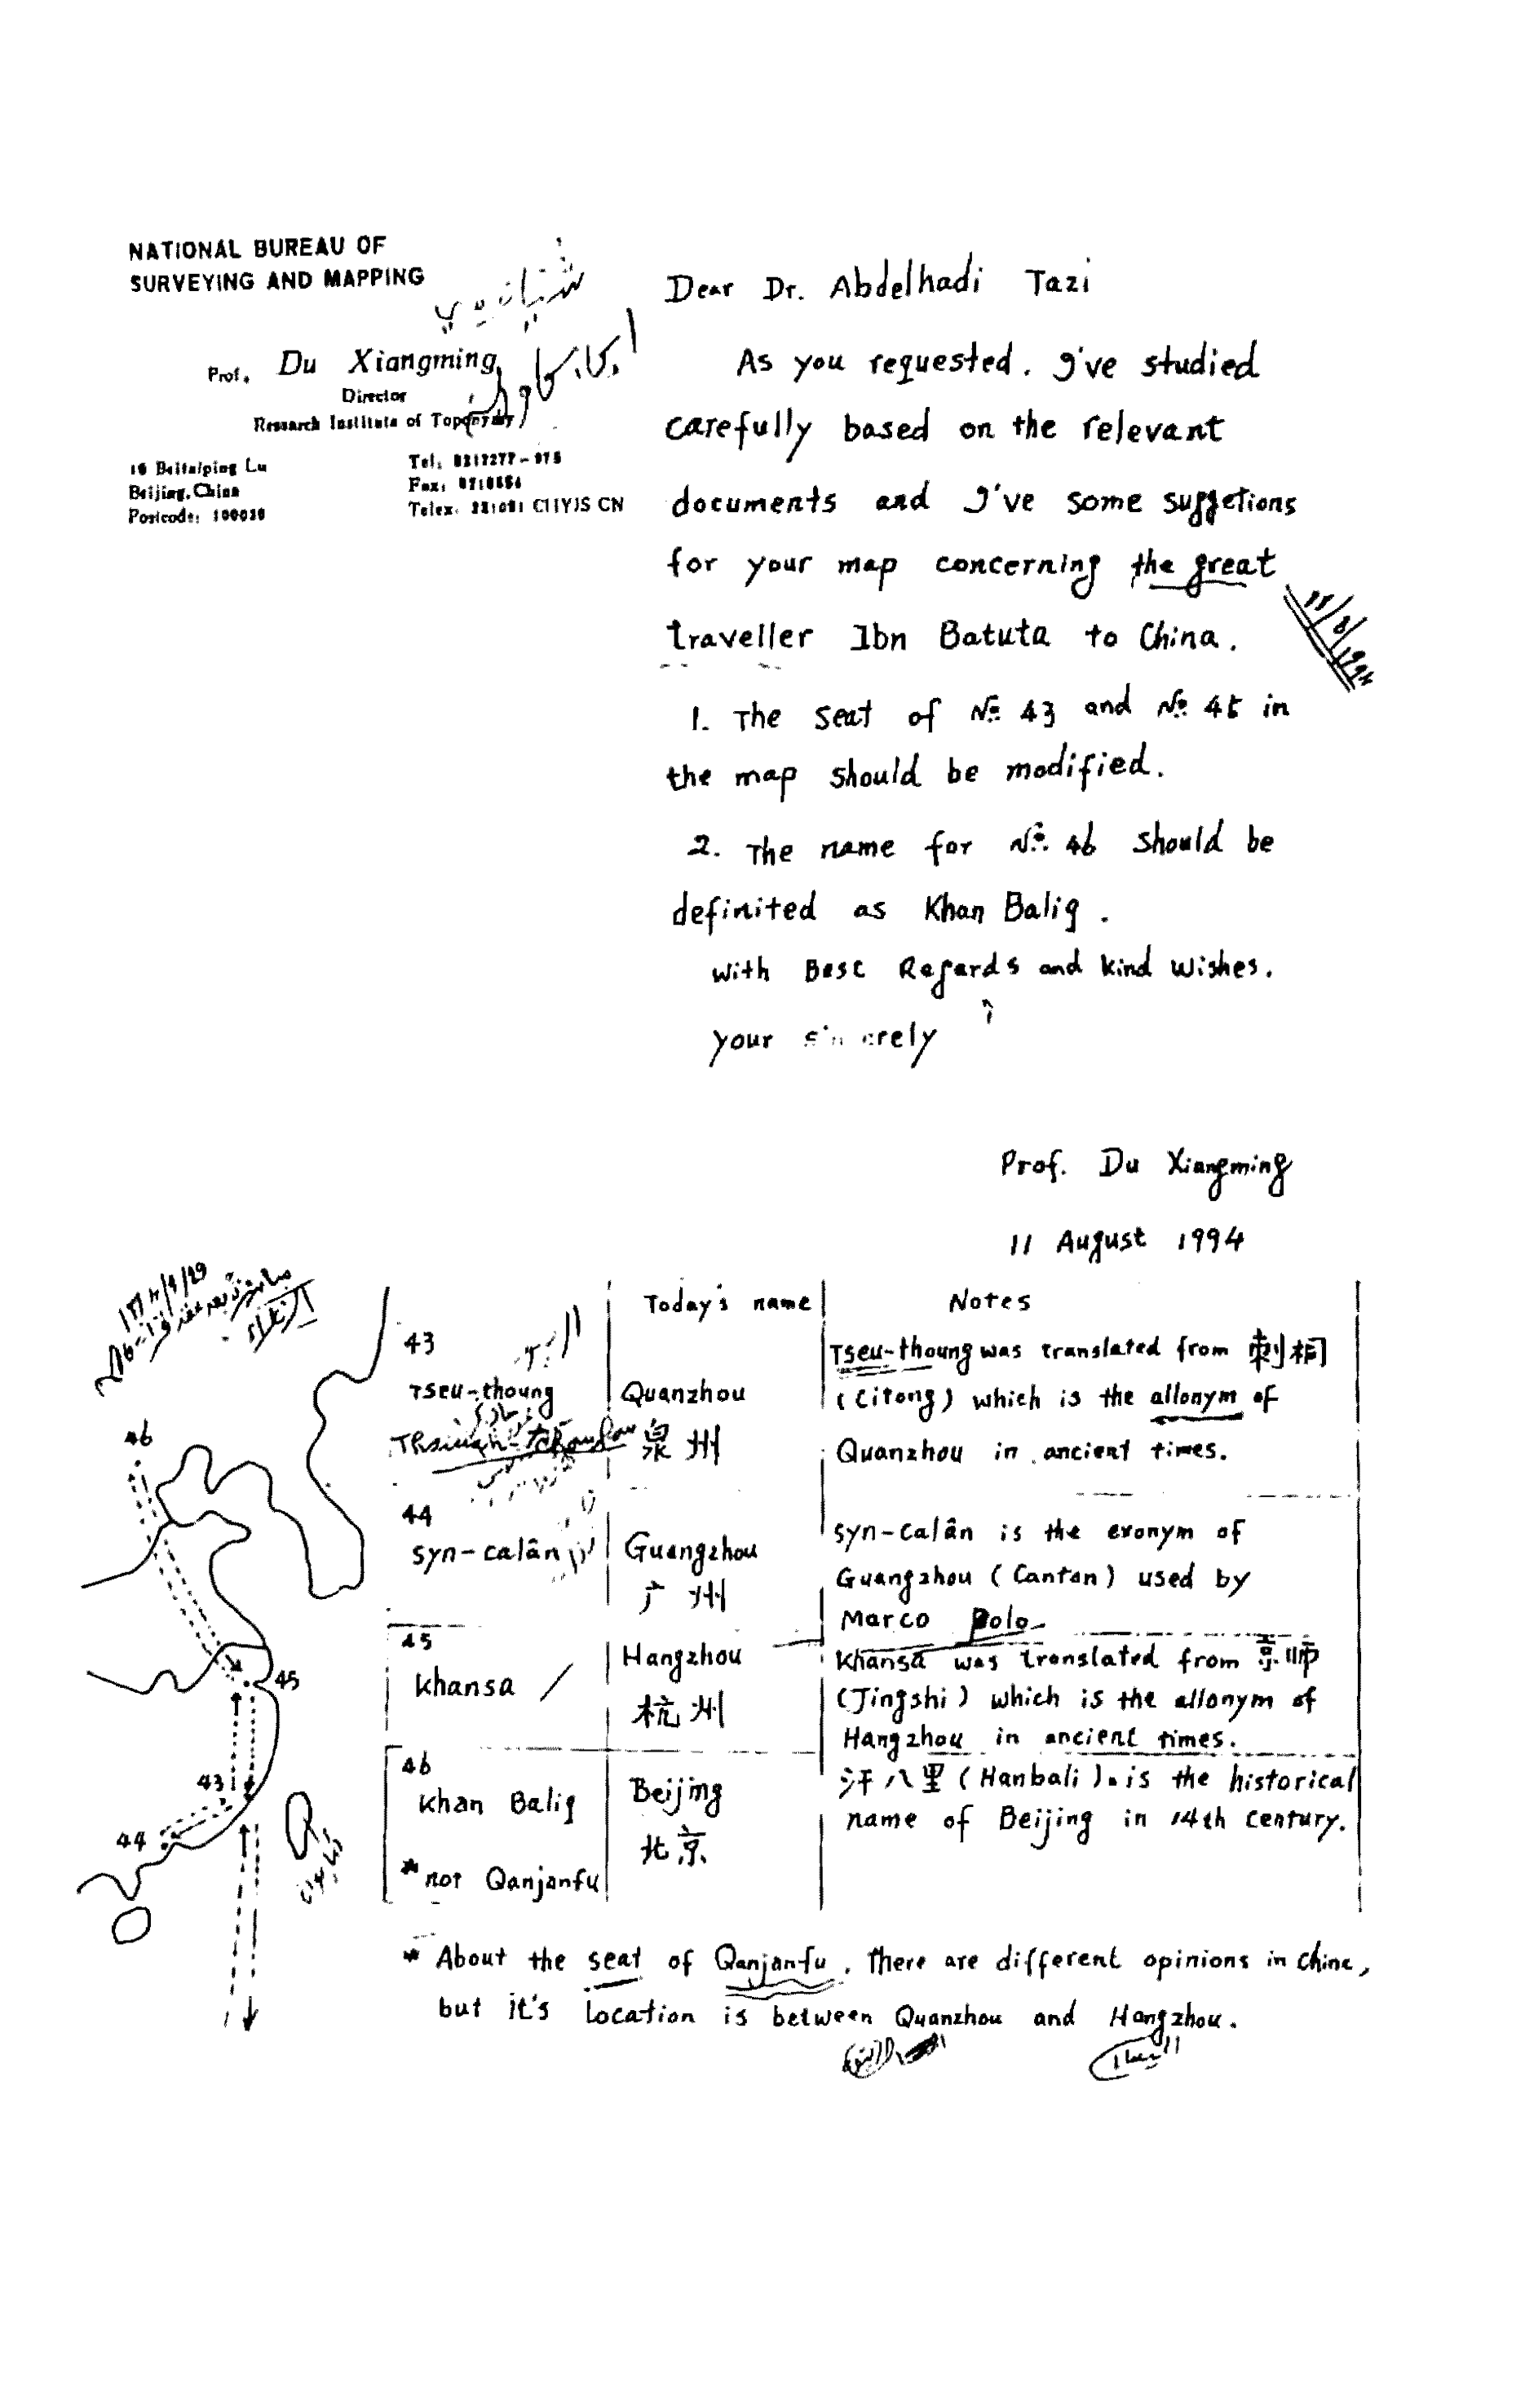 NATIONAL BUREAU OF
SURVEYING AND MAPPING
Prof. Du Xiangming
Director
Research Institute of
Beijing, China
Postcode:
Tel:
Fax:
Telex. CN
Dear Dr. Abdelhadi Tazi
As you requested. I've studied
carefully based on the relevant
documents and I've some suggetions
for your map concerning the great
traveller Ibn Batuta to China.
11/8/1994
1. The seat of № 43 and № 45 in
the map should be modified.
2. The name for № 46 should be
definited as Khan Balig.
with Best Regards and kind wishes.
your sincerely
Prof. Du Xiangming
11 August 1994
46
45
43
44
Today's name
Notes
43
Tseu-thoung
Quanzhou
泉州
Tseu-thoung was translated from 刺桐
(Citong) which is the allonym of
Quanzhou in ancient times.
44
Syn-calân
Guangzhou
广州
Syn-calân is the exonym of
Guangzhou (Canton) used by
Marco Polo
45
Khansa
Hangzhou
杭州
Khansa was translated from 京师
(Jingshi) which is the allonym of
Hangzhou in ancient times.
46
Khan Balig
* not Qanjanfu
Beijing
北京
汗八里 (Hanbali). is the historical
name of Beijing in 14th century.
* About the seat of Qanjanfu. There are different opinions in China,
but it's location is between Quanzhou and Hangzhou.